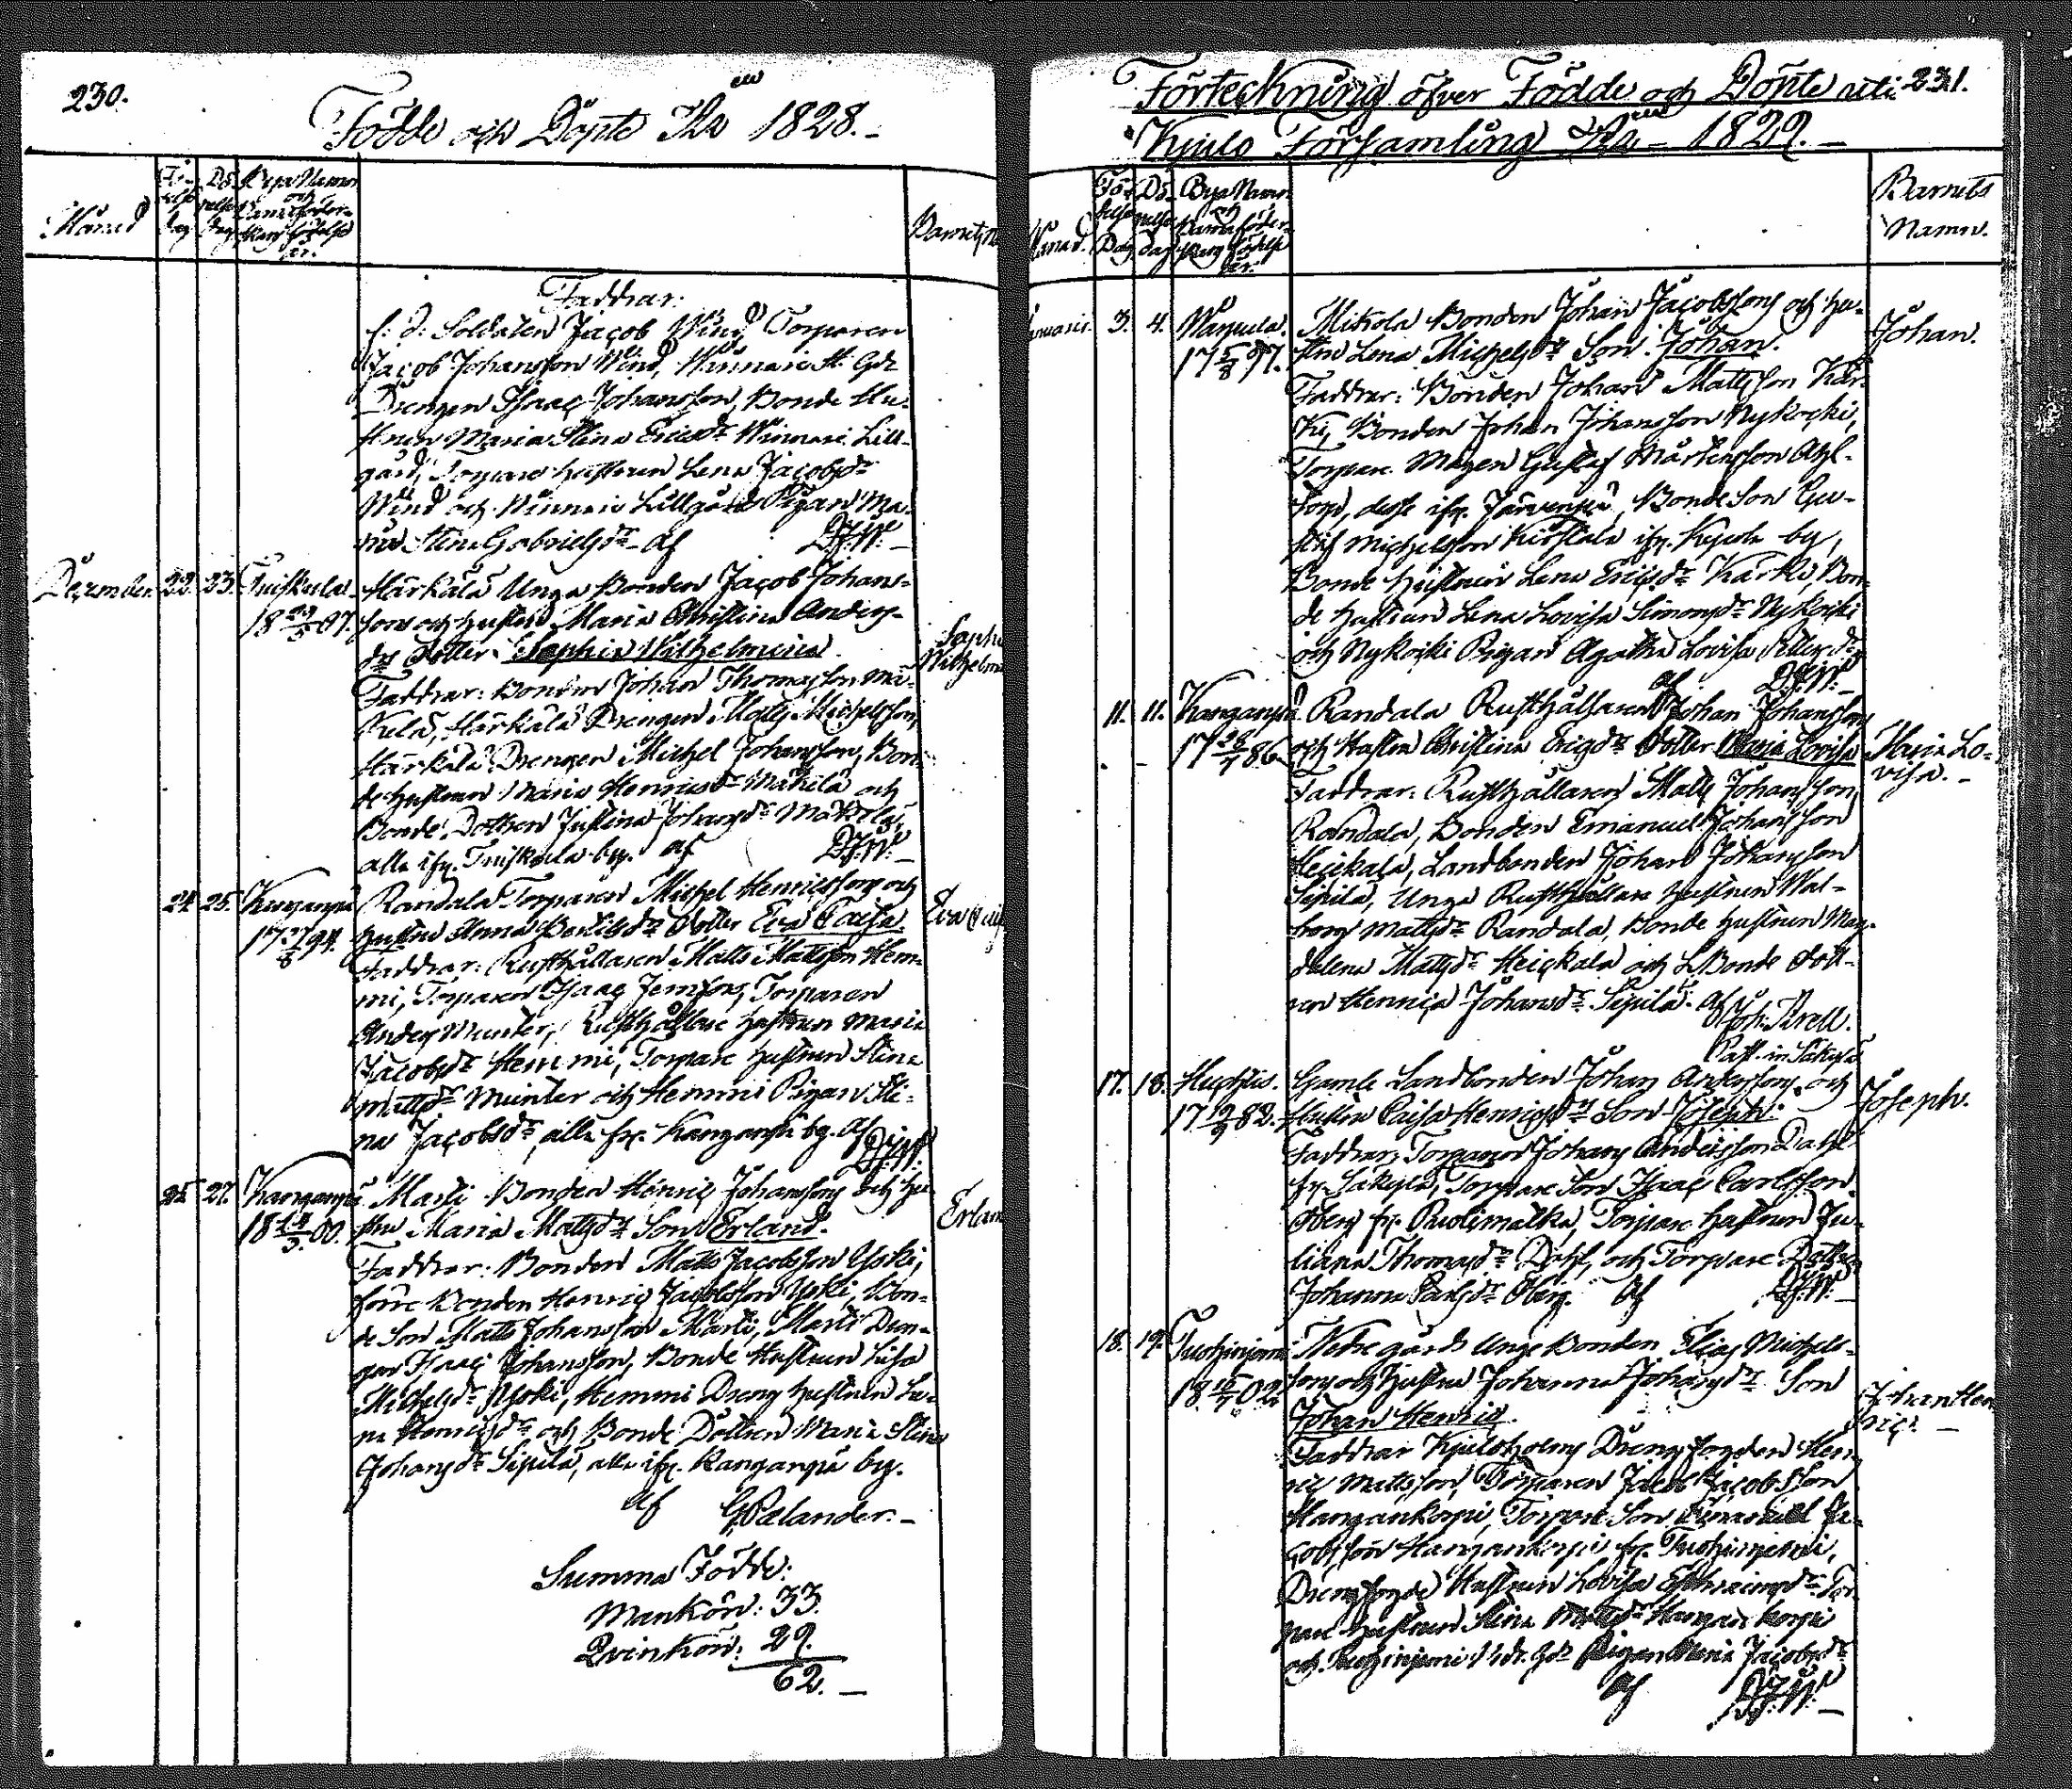 230.
Födde och Döpte År 1828.
Månad
Födelse dag
Döpelse dag
Bya Namn och
Barnaföderskans födelse
år.
Faddrar:
f. d. Soldaten Jacob Wind Torparen
Jacob Johansson Wind, Winnari St: Gds
Drengen Isaac Johansson, Bonde Hu-
strun Maria Stina Ericsdr Winnari Lill-
gård, Torpare hustrun Lena Jacobsdr
Wind och Winnari Lillgårds Pigan Ma-
ria Stina Gabrielsdr af D.J.W.
December 22. 23. Tuiskula Härkälä Unga Bonden Jacob Johans-
18 07. sons och hustrus Maria Christina Anders-
drs Dotter Sophia Wilhelmina.
Sophia
Wilhelmina
Faddrar: Bonden Johan Thomasson Mä-
kilä, Härkälä Drengen Matts Michelsson,
Härkälä Drengen Michel Johansson, Bon-
de hustrun Maria Henricsdr Mäkilä och
Bonde Dottren Justina Johansdr Mäkilä,
alla ifr. Tuiskula by. af D.J.W.
24. 25. Kanganpä Randala Torparen Michel Henricssons och
17 94. hustrus Anna Bertilsdrs Dotter Eva Caisa.
Eva Cais
Faddrar: Rusthållaren Matts Mattsson Hem-
mi, Torparen Isaac Jernfors, Torparen
Anders Munter, Rusthållare hustrun Maria
Jacobsdr Hemmi, Torpare hustrun Stina
Mattsdr Munter och Hemmi Pigan Sti-
na Jacobsdr, alla fr. Kanganpä by. af D.J.W.
25. 27. Kanganpä Marti Bonden Henric Johanssons och hu-
18 00. strus Maria Mattsdrs Son Erland.
Erlan
Faddrar: Bonden Matts Jacobsson Yski,
förre Bonden Henric Jacobsson Yski, Bon-
de Son Matts Johansson Marti, Marti Dren-
gen Isaac Johansson, Bonde Hustrun Lisa
Michelsdr Yski, Hemmi Dreng hustrun Le-
na Henricsdr och Bonde Dottren Maria Stina
Johansdr Sipilä, alla ifr. Kanganpä by.
af G. Palander.
Summa Födde:
Mankön: 33.
Qvinkön: 29.
62.
Förteckning öfver Födde och Döpte uti 231.
Kjulo Församling År 1829.
Månad.
Födelse Dag
Döpelse dag
Bya Namn
och
Barnaföder-
skans födelse
år.
Barnets
Namn.
Januarii. 3. 4. Mikola Bonden Johan Jacobssons och hu-
17 97. strus Lena Michelsdrs Son Johan.
Johan.
Faddrar: Bonden Johan Mattsson Kär-
ki, Bonden Johan Johansson Nykoski,
Torpare Mågen Gustaf Mårtensson
desse ifr. Järvenpä, Bonde Son Gu-
staf Michelsson ifr. by,
Bonde hustrun Lena Ericsdr Kärki, Bon-
de hustrun Lena Lovisa Simonsdr Nykoski
och Nykoski Pigan Agatha Lovisa
af D.J.W.
11. 11. Kanganpä. Randala Rusthållaren Johan Johanssons
17 86. och Hustrus Christina Ericsdrs Dotter Maria Lovisa
Maria Lo-
visa.
Faddrar: Rusthållaren Matts Johansson
Randala, Bonden Emanuel Johansson
Heickala, Landbonden Johan Johansson
Sipilä, Unga Rusthållare hustrun Wal-
borg Mattsdr Randala, Bonde hustrun Mag-
dalena Mattsdr Heickala och L.Bonde Dott-
ren Henrica Johansdr Sipilä. af Joh: Brell.
Past. in Säkylä
17. 18. Gamle Landbonden Johan Anderssons och
17 82. Hustrus Caisa Henricsdrs Son Joseph.
Joseph.
Faddrar: Torparen Johan Andersson Dahl
fr. Säkylä, Torpare Son Isaac Carlsson
Öberg fr. Torpare hustrun Ju-
liana Thomasdr Dahl, och Torpare Dottren
Johanna Carlsdr Öberg. af D.J.W.
18. 19. Tuohiniemi Nedre gårds Unga Bonden Elias Michels-
18 02. sons och hustrus Johanna Johansdrs Son
Johan Henric.
Johan Hen-
ric.
Faddrar Kjuloholms Drengfogden Hen-
ric Mattsson, Torparen Jacob Jacobsson
Hangankorpi, Torpare Son Emanuel Ja-
cobsson Hangankorpi fr. Tuohiniemi,
Drengfogde Hustrun Lovisa Ephraimsdr Tor-
pare hustrun Stina Mattsdr Hangankorpi
och Tuohiniemi Nedr. gds Pigan Maria Jacobsdr
af D.J.W.